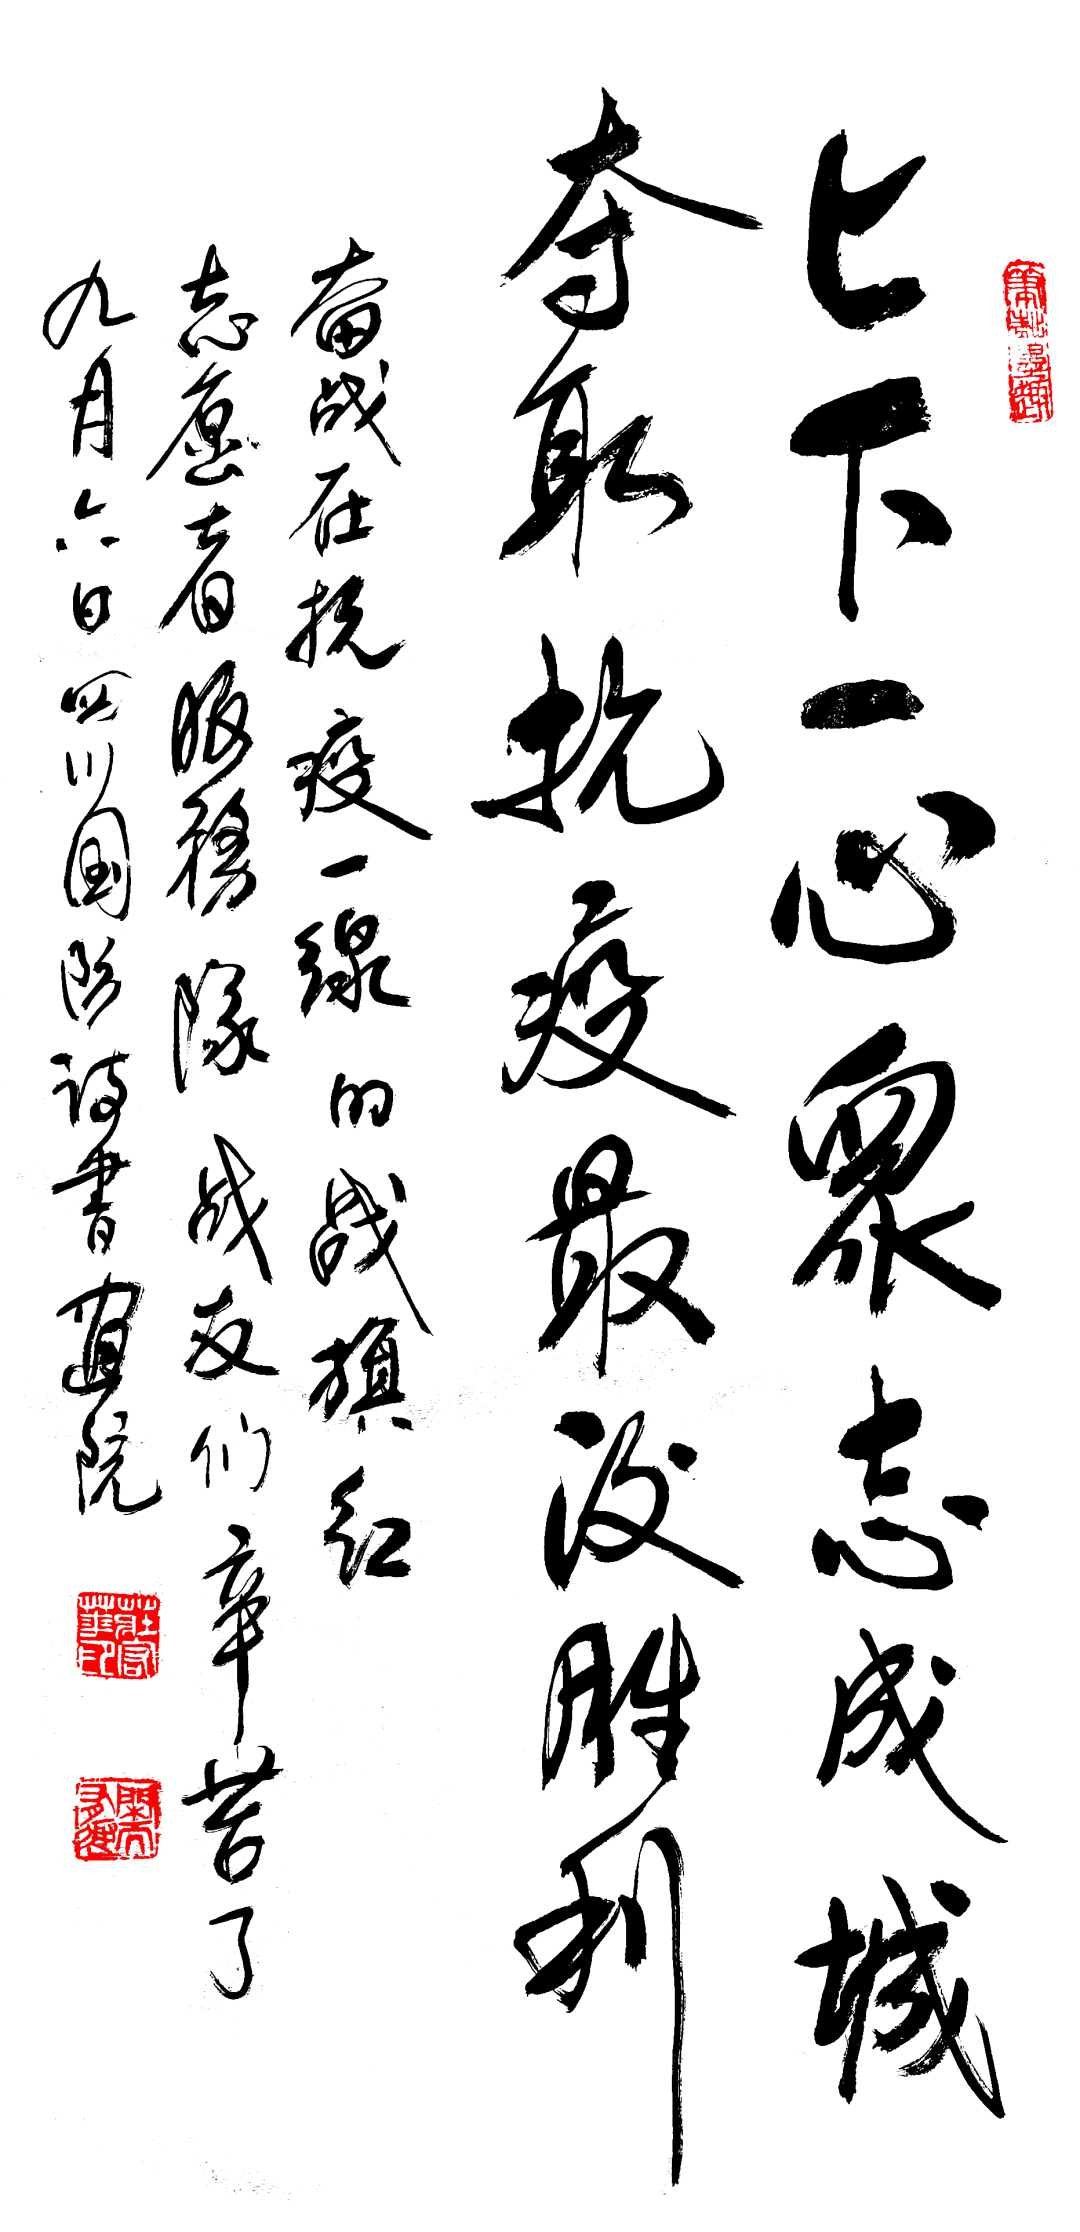 上下一心眾志成城
夺取抗疫最没胜利
奋战在抗疫一線的战旗红
志愿者服務隊战友们辛苦了
九月六日四川国防诗書画院